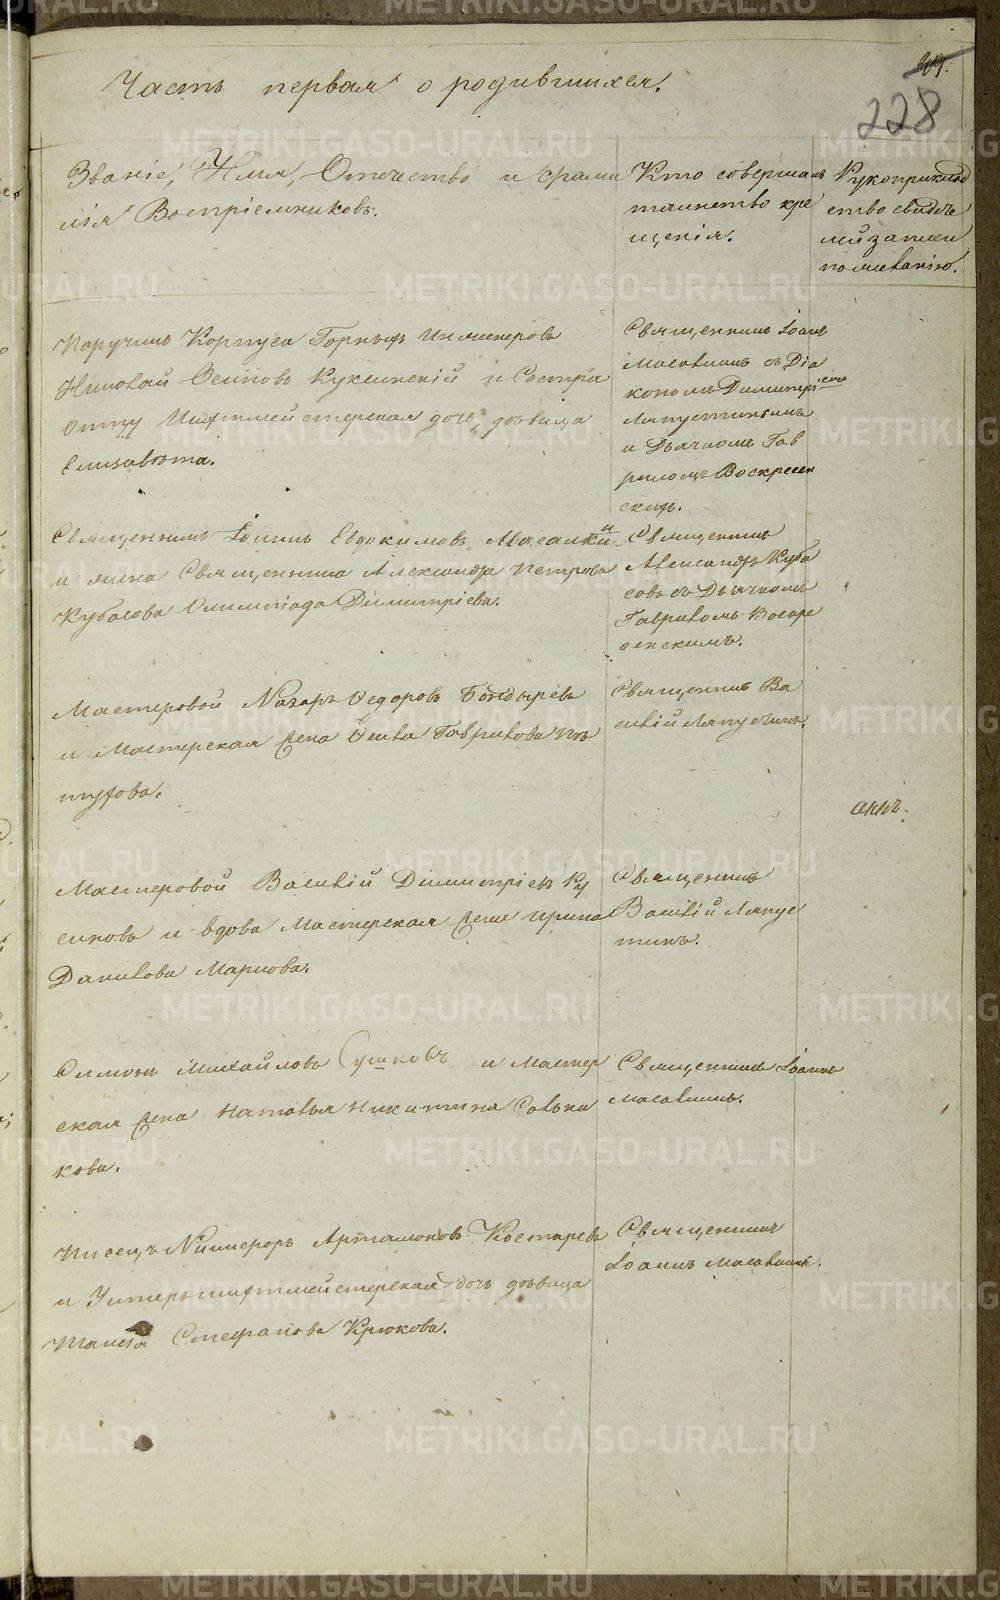 Часть первая о родившихся.
228
Званіе, Имя, Отчество и фами
лія Воспріемниковъ.
Кто совершалъ
таинство кре
щенія.
Рукоприклад
ство свидѣте
лей записи
по желанію.
Поручикъ Корпуса Горныхъ Инженеровъ
Николай Осиповъ и Сестра
Шихтмейстерская дочь, дѣвица
Елизавета.
Священникъ Іоаннъ
съ Діа
кономъ Димитріемъ
Ляпустинымъ
и Дьячкомъ Гав
риломъ Воскресен
скимъ.
Священникъ Іоаннъ Евдокимовъ
и жена Священника Александра Петрова
Кубасова Олимпіада Димитріева.
Священникъ
Александръ Куба
совъ съ Дьячкомъ
Гавриломъ Воскре
сенскимъ.
Мастеровой Назаръ Федоровъ Бондыревъ
и Мастерская жена Фекла Гаврилова Пѣ
тухова.
Священникъ Ва
силій Ляпустинъ.
Мастеровой Василій Димитріевъ Ку
сковъ и вдова Мастерская жена Ирина
Данилова Маркова.
Священникъ
Василій Ляпус
тинъ.
Симонъ Михайловъ Сушковъ и Мастер
ская жена Наталья Никитина Савѣн
кова.
Священникъ Іоаннъ
Писецъ Никифоръ Артамоновъ Костаревъ
и Унтершихтмейстерская дочь дѣвица
Таисія Стефанова Крюкова.
Священникъ
Іоаннъ
METRIKI.GASO-URAL.RU